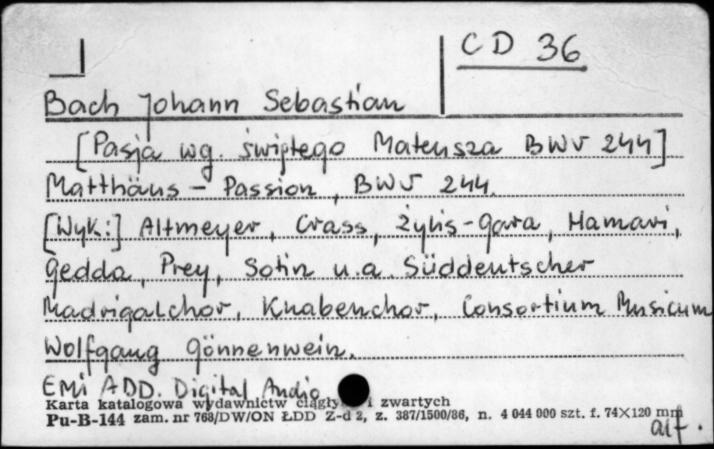 CD 36
Bach Johann Sebastian
[Pasja wg. świętego Mateusza BWV 244]
Matthäus - Passion, BWV 244.
[Wyk:] Altmeyer, Crass, Żylis-Gara, Hamari,
Gedda, Prey, Sotin u.a. Süddeutscher
Madrigalchor, Knabenchor, Consortium Musicum
Wolfgang Gönnenwein.
EMI ADD. Digital Audio
Karta katalogowa wydawnictw ciągły i zwartych
Pu-B-144 zam. nr 768/DW/ON ŁDD Z-d 2, z. 387/1500/86, n. 4 044 000 szt. f. 74×120 mm
alf.